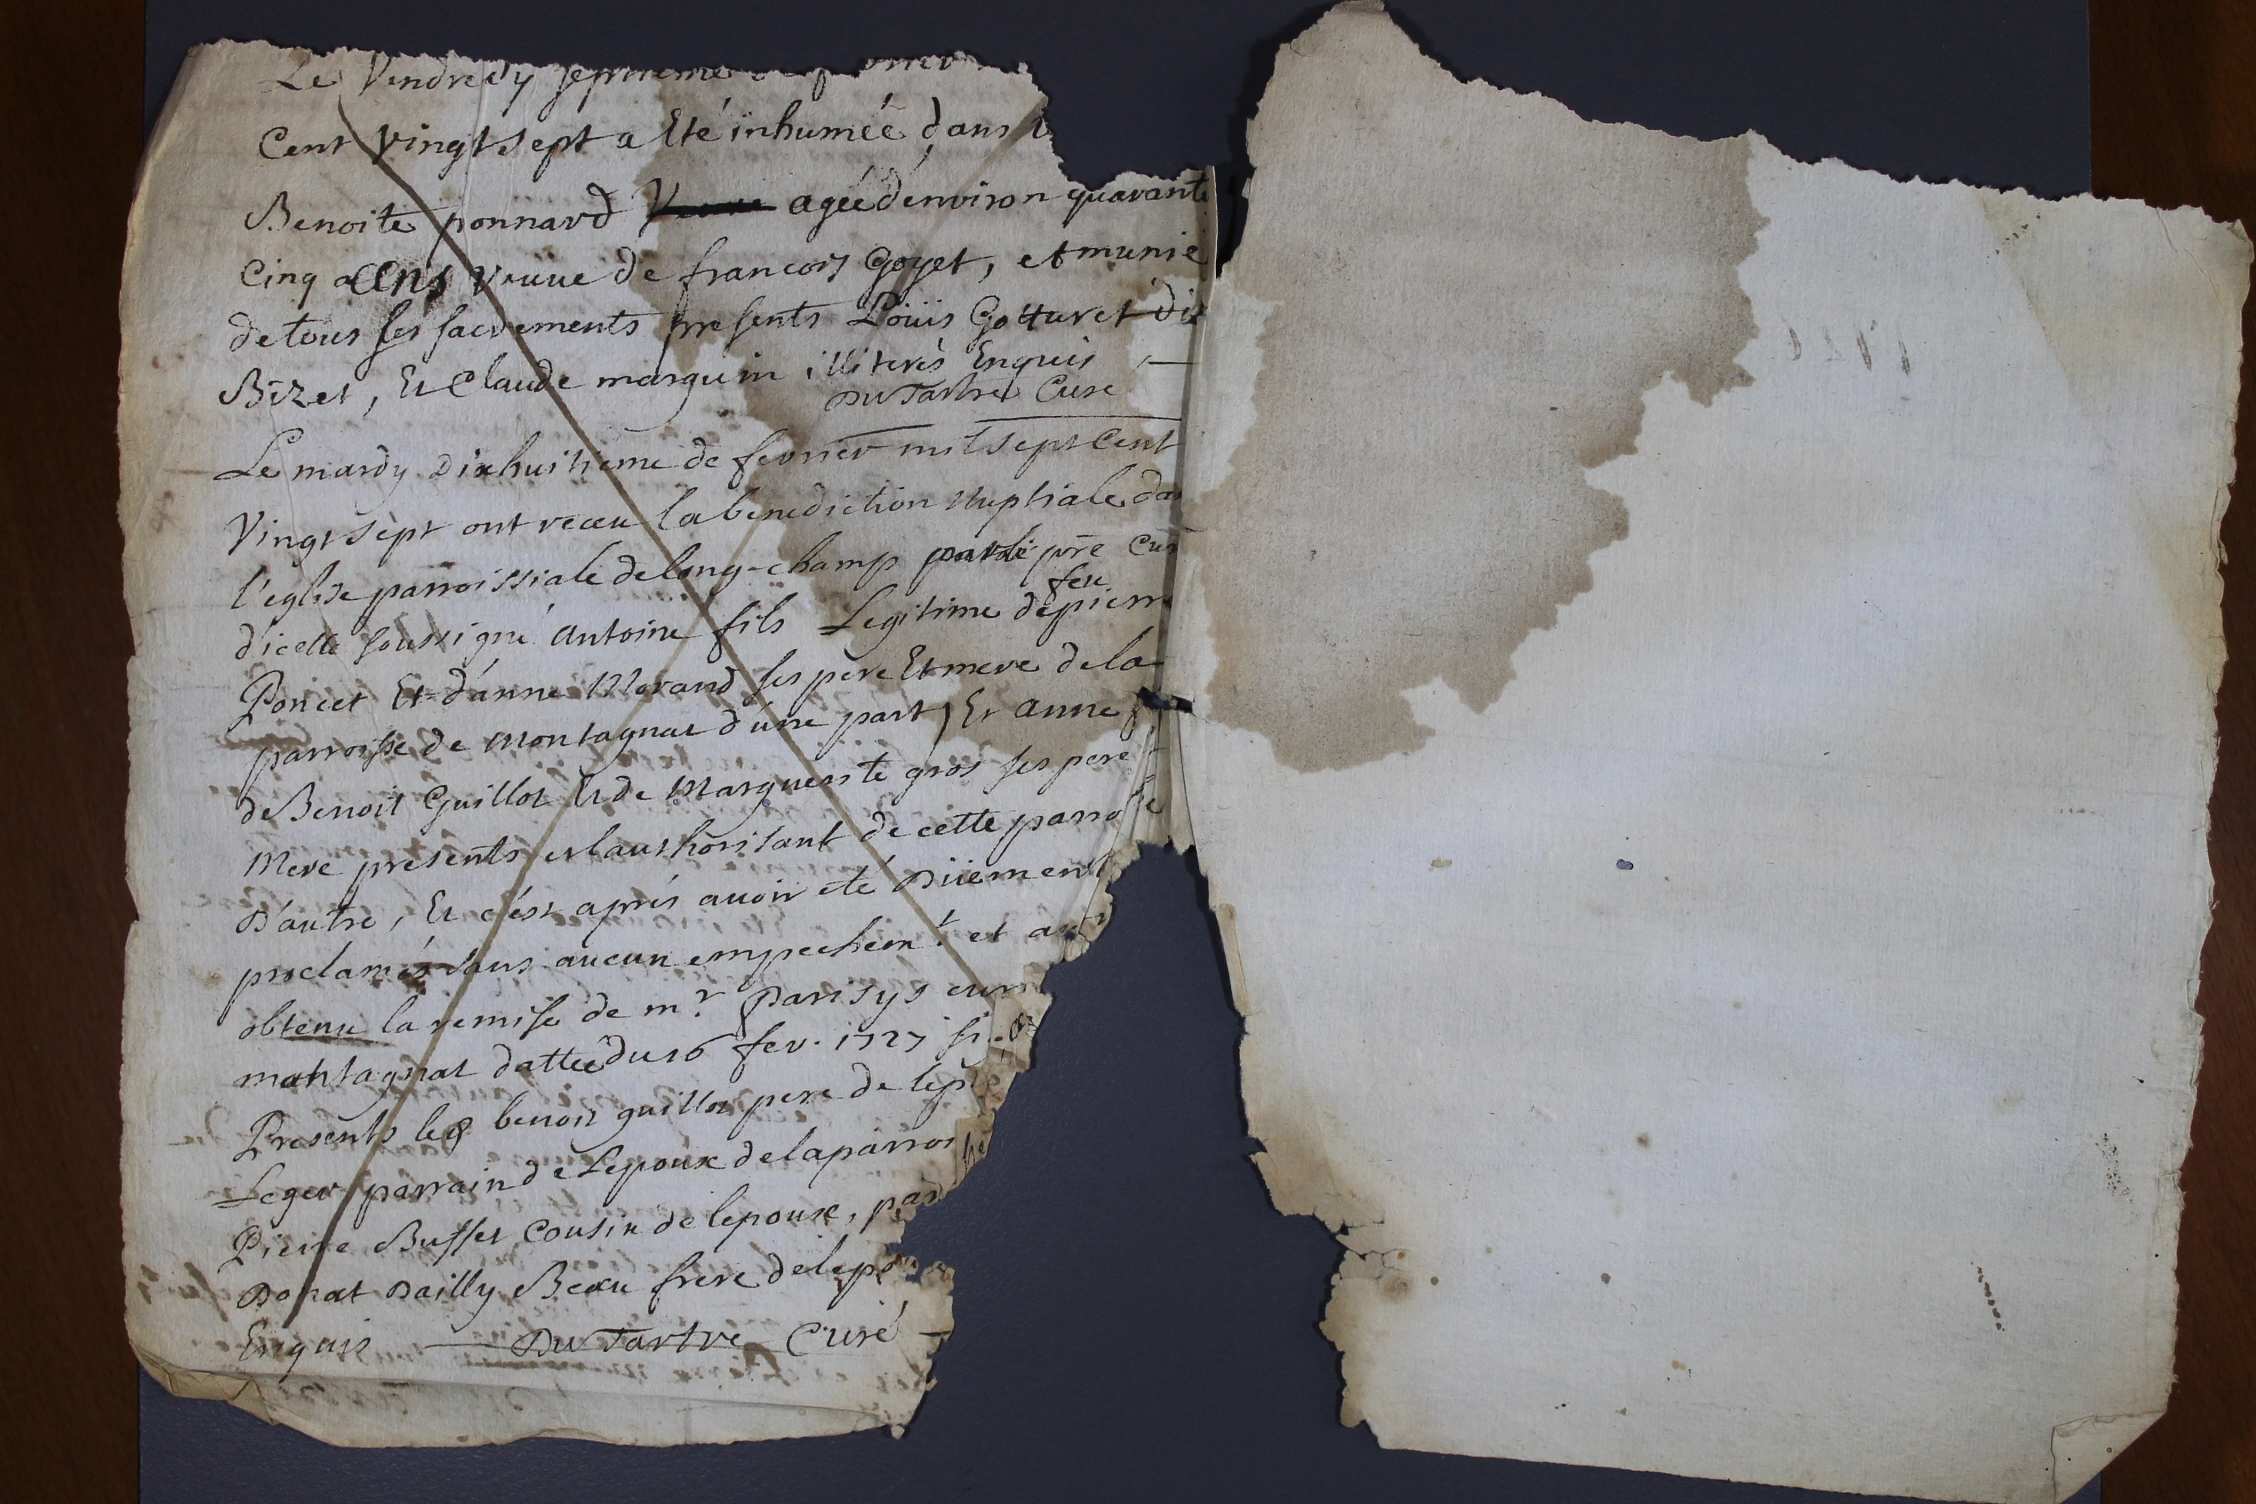 Le Vendredy septiéme
Cent Vingt sept a Eté inhumée dans
Benoite ponnard agée d'environ quarante
Cinq ans veuve de francois Goyet, et munie
de tous les sacrements presents Loüis Gotturet dit
Bizet, Et Claude marguin illiterés Enquis
Du Tartre Curé
Le mardy dixhuitieme de fevrier mil sept Cent
Vingt sept ont receu la benediction Nuptiale dans
l'eglise parroissiale de long-champ par le pre Cur
d'icelle soussigné Antoine fils Legitime de feu pierre
Poncet Et d'anne Morand ses pere Et mere de la
parroisse de montagnat d'une part, Et anne
de Benoit Guillot Et de Marguerite gros ses pere
Mere presents et l'authorisant de cette parroisse
D'autre, Et c'est aprés avoir eté Düement
proclamés sans aucun empechemt. et
obtenu la remise de mr. Parisys
montagnat dattée du 16 fev. 1727
Presents led benoit guillot pere de
Leger parrain de Lepoux de la parroisse
Pierre Buffet Cousin de lepoux,
Donat Dailly Beau frere de
Enquis Du Tartre Curé